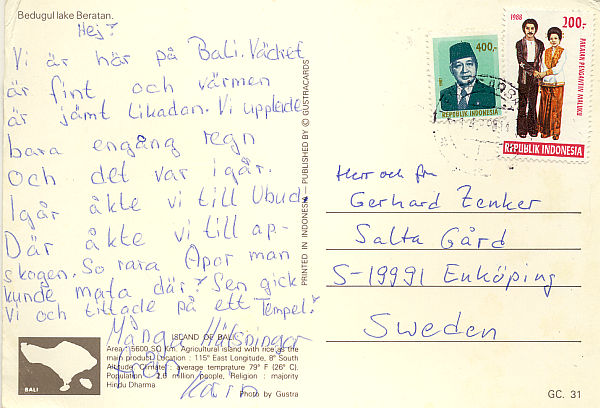 Bedugul lake Beratan.
Hej!
Vi är här på Bali. Vädret
är fint och värmen
är jämt likadan. Vi upplevde
bara engång regn
Och det var igår.
Igår åkte vi till Ubud.
Där åkte vi till ap-
skogen. So rara Apor man
kunde mata där! Sen gick
Vi och tittade på ett Tempel!
Många Hälsningar
från
Karin
PRINTED IN INDONESIA - PUBLISHED BY © GUSTRACARDS
400,-
REPUBLIK INDONESIA
1988
200,-
PAKAIAN PENGANTIN MALUKU
REPUBLIK INDONESIA
Herr och fru
Gerhard Zenker
Salta Gård
S-19991 Enköping
Sweden
BALI
ISLAND OF BALI
Area : 5600 SQ Km. Agricultural island with rice as the
main product. Location : 115° East Longitude, 8° South
Climate : average temprature 79° F (26° C).
Population : 2,6 million people, Religion : majority
Hindu Dharma
Photo by Gustra
GC. 31